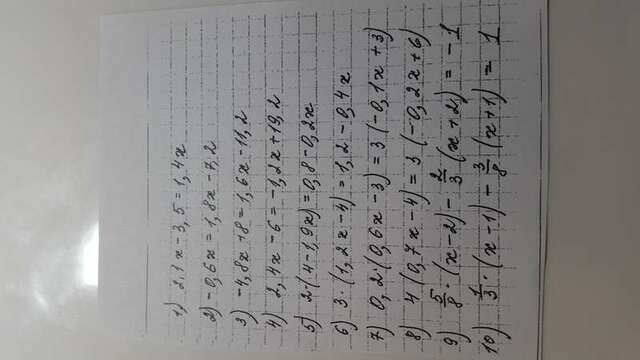 1) 2,1x-3,5=1,4x
2) -0,6x=1,8x-7,2
3) -4,8x+8=1,6x-11,2
4) 2,4x-6=-1,2x+19,2
5) 2·(4-1,9x)=0,8-0,2x
6) 3·(1,2x-4)=1,2-0,4x
7) 0,2·(0,6x-3)=3(-0,1x+3)
8) 4(0,7x-4)=3(-0,2x+6)
9) 5/8·(x-2)-2/3·(x+2)=-1
10) 1/3·(x-1)-3/8(x+1)=1